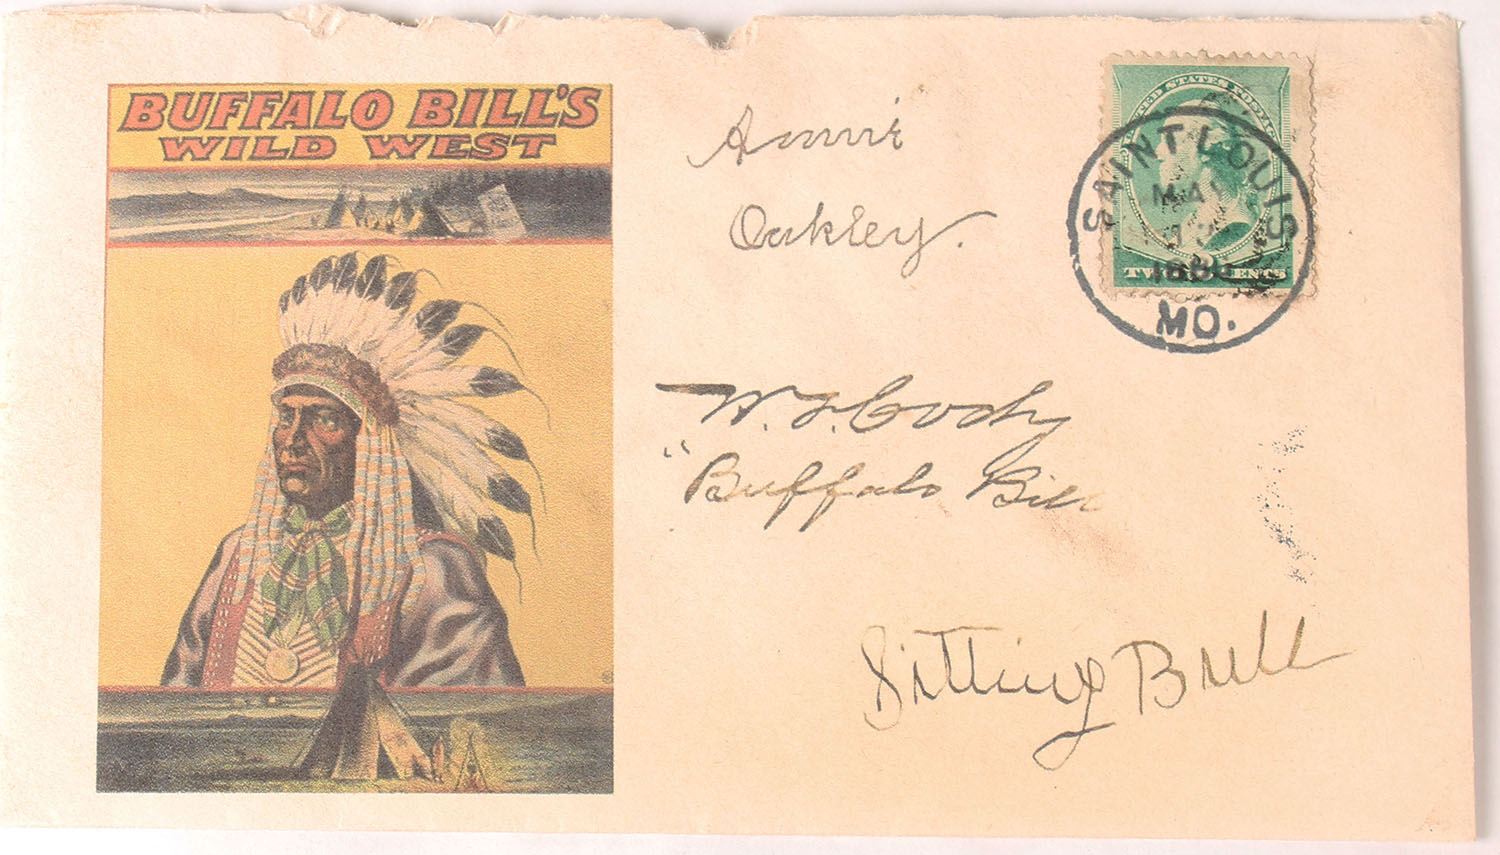 BUFFALO BILL'S
WILD WEST
Annie
Oakley.
W. F. Cody
"Buffalo Bill
Sitting Bull
UNITED STATES POSTAGE
TWO CENTS
SAINT LOUIS
MO.